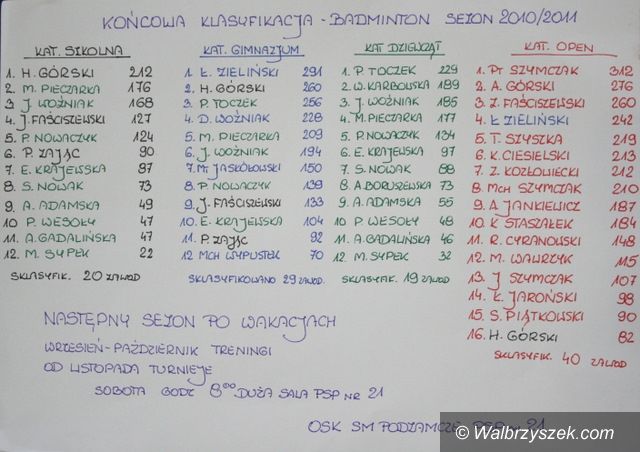 KOŃCOWA KLASYFIKACJA - BADMINTON SEZON 2010/2011
KAT. SZKOLNA
1. H. GÓRSKI 212
2. M. PIECZARKA 176
3. J. WOŹNIAK 168
4. J. FAŚCISZEWSKI 127
5. P. NOWACZYK 124
6. P. ZAJĄC 90
7. E. KRAJEWSKA 97
8. S. NOWAK 73
9. A. ADAMSKA 49
10 P. WESOŁY 47
11. A. GADALIŃSKA 47
12. M. SYPEK 22
SKLASYFIK. 20 ZAWOD
KAT. GIMNAZJUM
1. Ł. ZIELIŃSKI 291
2. H. GÓRSKI 260
3. P. TOCZEK 256
4. D. WOŹNIAK 228
5. M. PIECZARKA 209
6. J. WOŹNIAK 194
7. M. JASKÓŁOWSKI 150
8. P. NOWACZYK 139
9. J. FAŚCISZEWSKI 133
10. E. KRAJEWSKA 104
11. P. ZAJĄC 92
12 MCH WYPUSTEK 70
SKLASYFIKOWANO 29 ZAWOD.
KAT DZIEWCZĄT
1. P. TOCZEK 229
2. W. KARBOWSKA 189
3. J. WOŹNIAK 185
4. M. PIECZARKA 177
5. P. NOWACZYK 134
6. E. KRAJEWSKA 97
7. S. NOWAK 88
8. A. BORUSZEWSKA 73
9. A. ADAMSKA 55
10 P. WESOŁY 48
11. A. GADALIŃSKA 46
12. M. SYPEK 32
SKLASYFIK. 19 ZAWOD
KAT. OPEN
1. PT SZYMCZAK 312
2. A. GÓRSKI 276
3. Z. FAŚCISZEWSKI 260
4. Ł ZIELIŃSKI 242
5. T. SZYSZKA 219
6. K. CIESIELSKI 213
7. Z. KOZŁOWIECKI 212
8. MCH SZYMCZAK 210
9. A. JANKIEWICZ 187
10. K STASZAŁEK 184
11. R. CYRANOWSKI 148
12. M. WAWRZYK 115
13. J SZYMCZAK 107
14. Ł. JAROŃSKI 98
15. S. PIĄTKOWSKI 90
16. H. GÓRSKI 82
SKLASYFIK. 40 ZAWOD
NASTĘPNY SEZON PO WAKACJACH
WRZESIEŃ-PAŹDZIERNIK TRENINGI
OD LISTOPADA TURNIEJE
SOBOTA GODZ 8⁰⁰ DUŻA SALA PSP NR 21
OSK SM PODZAMCZE PSP NR 21
© Walbrzyszek.com